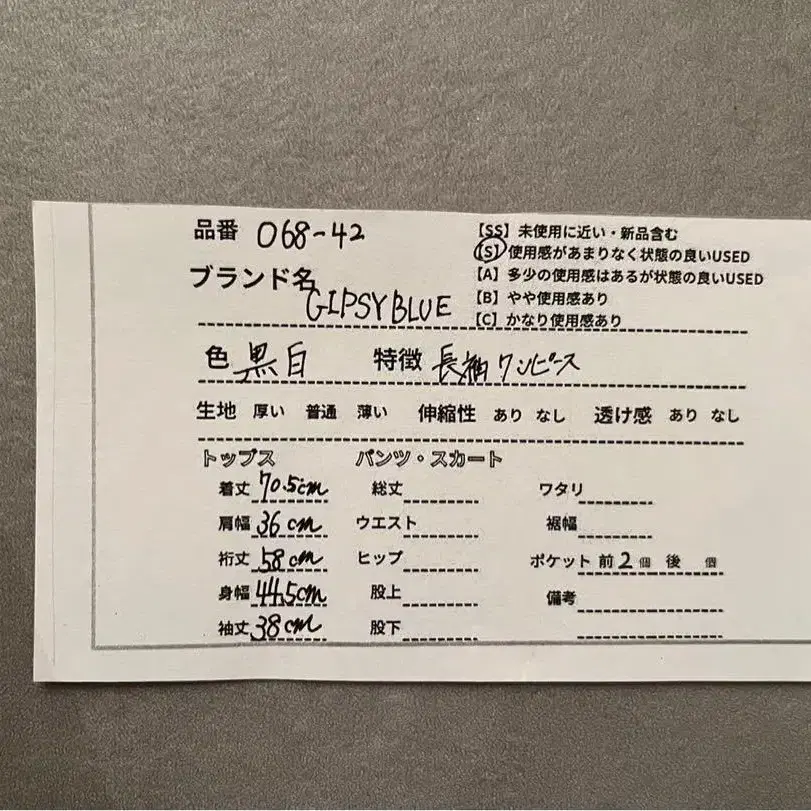 品番 068-42
【SS】未使用に近い・新品含む
【S】使用感があまりなく状態の良いUSED
【A】多少の使用感はあるが状態の良いUSED
【B】やや使用感あり
【C】かなり使用感あり
ブランド名 GIPSY BLUE
色 黒白 特徴 長袖ワンピース
生地 厚い 普通 薄い 伸縮性 あり なし 透け感 あり なし
トップス パンツ・スカート
着丈 70.5cm 総丈 ワタリ
肩幅 36cm ウエスト 裾幅
裄丈 58cm ヒップ ポケット 前 2 個 後 個
身幅 44.5cm 股上 備考
袖丈 38cm 股下